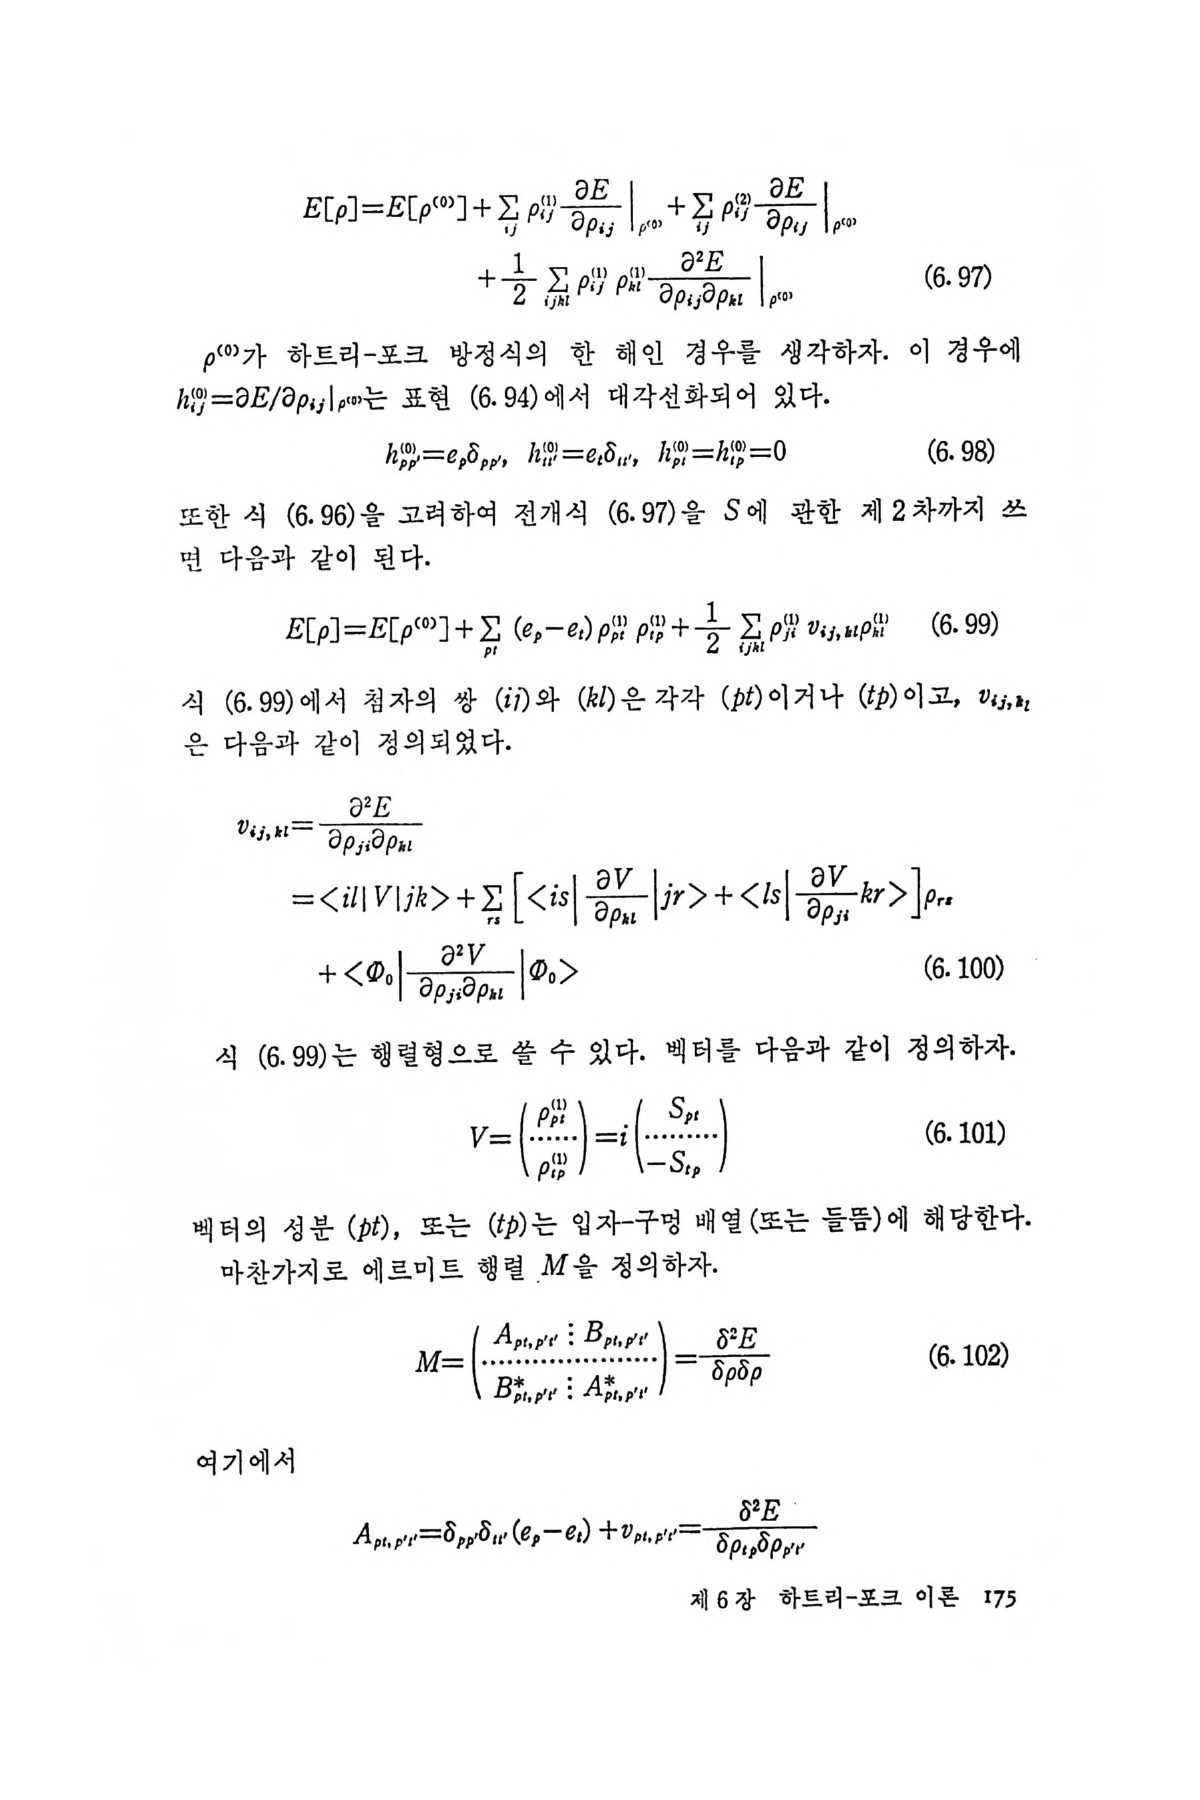 E[ρ]=E[ρ⁽⁰⁾]+∑_{ij} ρ_{ij}^{(1)} ∂E/∂ρ_{ij}|_{ρ⁽⁰⁾}+∑_{ij} ρ_{ij}^{(2)} ∂E/∂ρ_{ij}|_{ρ⁽⁰⁾}
+1/2 ∑_{ijkl} ρ_{ij}^{(1)} ρ_{kl}^{(1)} ∂²E/∂ρ_{ij}∂ρ_{kl}|_{ρ⁽⁰⁾} (6.97)
ρ⁽⁰⁾가 하트리-포크 방정식의 한 해인 경우를 생각하자. 이 경우에
h_{ij}^{(0)}=∂E/∂ρ_{ij}|_{ρ⁽⁰⁾}는 표현 (6.94)에서 대각선화되어 있다.
h_{pp'}^{(0)}=e_pδ_{pp'}, h_{tt'}^{(0)}=e_tδ_{tt'}, h_{pt}^{(0)}=h_{tp}^{(0)}=0 (6.98)
또한 식 (6.96)을 고려하여 전개식 (6.97)을 S에 관한 제2차까지 쓰
면 다음과 같이 된다.
E[ρ]=E[ρ⁽⁰⁾]+∑_{pt} (e_p−e_t)ρ_{pt}^{(1)} ρ_{tp}^{(1)}+1/2 ∑_{ijkl} ρ_{ji}^{(1)} v_{ij,kl}ρ_{kl}^{(1)} (6.99)
식 (6.99)에서 첨자의 쌍 (ij)와 (kl)은 각각 (pt)이거나 (tp)이고, v_{ij,kl}
은 다음과 같이 정의되었다.
v_{ij,kl}=∂²E/∂ρ_{ji}∂ρ_{kl}
=<il|V|jk>+∑_{rs}[<is|∂V/∂ρ_{kl}|jr>+<ls|∂V/∂ρ_{ji}kr>]ρ_{rs}
+<Φ₀|∂²V/∂ρ_{ji}∂ρ_{kl}|Φ₀> (6.100)
식 (6.99)는 행렬형으로 쓸 수 있다. 벡터를 다음과 같이 정의하자.
V=(ρ_{pt}^{(1)} ...... ρ_{tp}^{(1)})=i(S_{pt} ......... −S_{tp}) (6.101)
벡터의 성분 (pt), 또는 (tp)는 입자-구멍 배열(또는 들뜸)에 해당한다.
마찬가지로 에르미트 행렬 M을 정의하자.
M=(A_{pt,p't'} ⋮ B_{pt,p't'} ..................... B*_{pt,p't'} ⋮ A*_{pt,p't'})=δ²E/δρδρ (6.102)
여기에서
A_{pt,p't'}=δ_{pp'}δ_{tt'}(e_p−e_t)+v_{pt,p't'}=δ²E/δρ_{tp}δρ_{p't'}
제6장 하트리-포크 이론 175